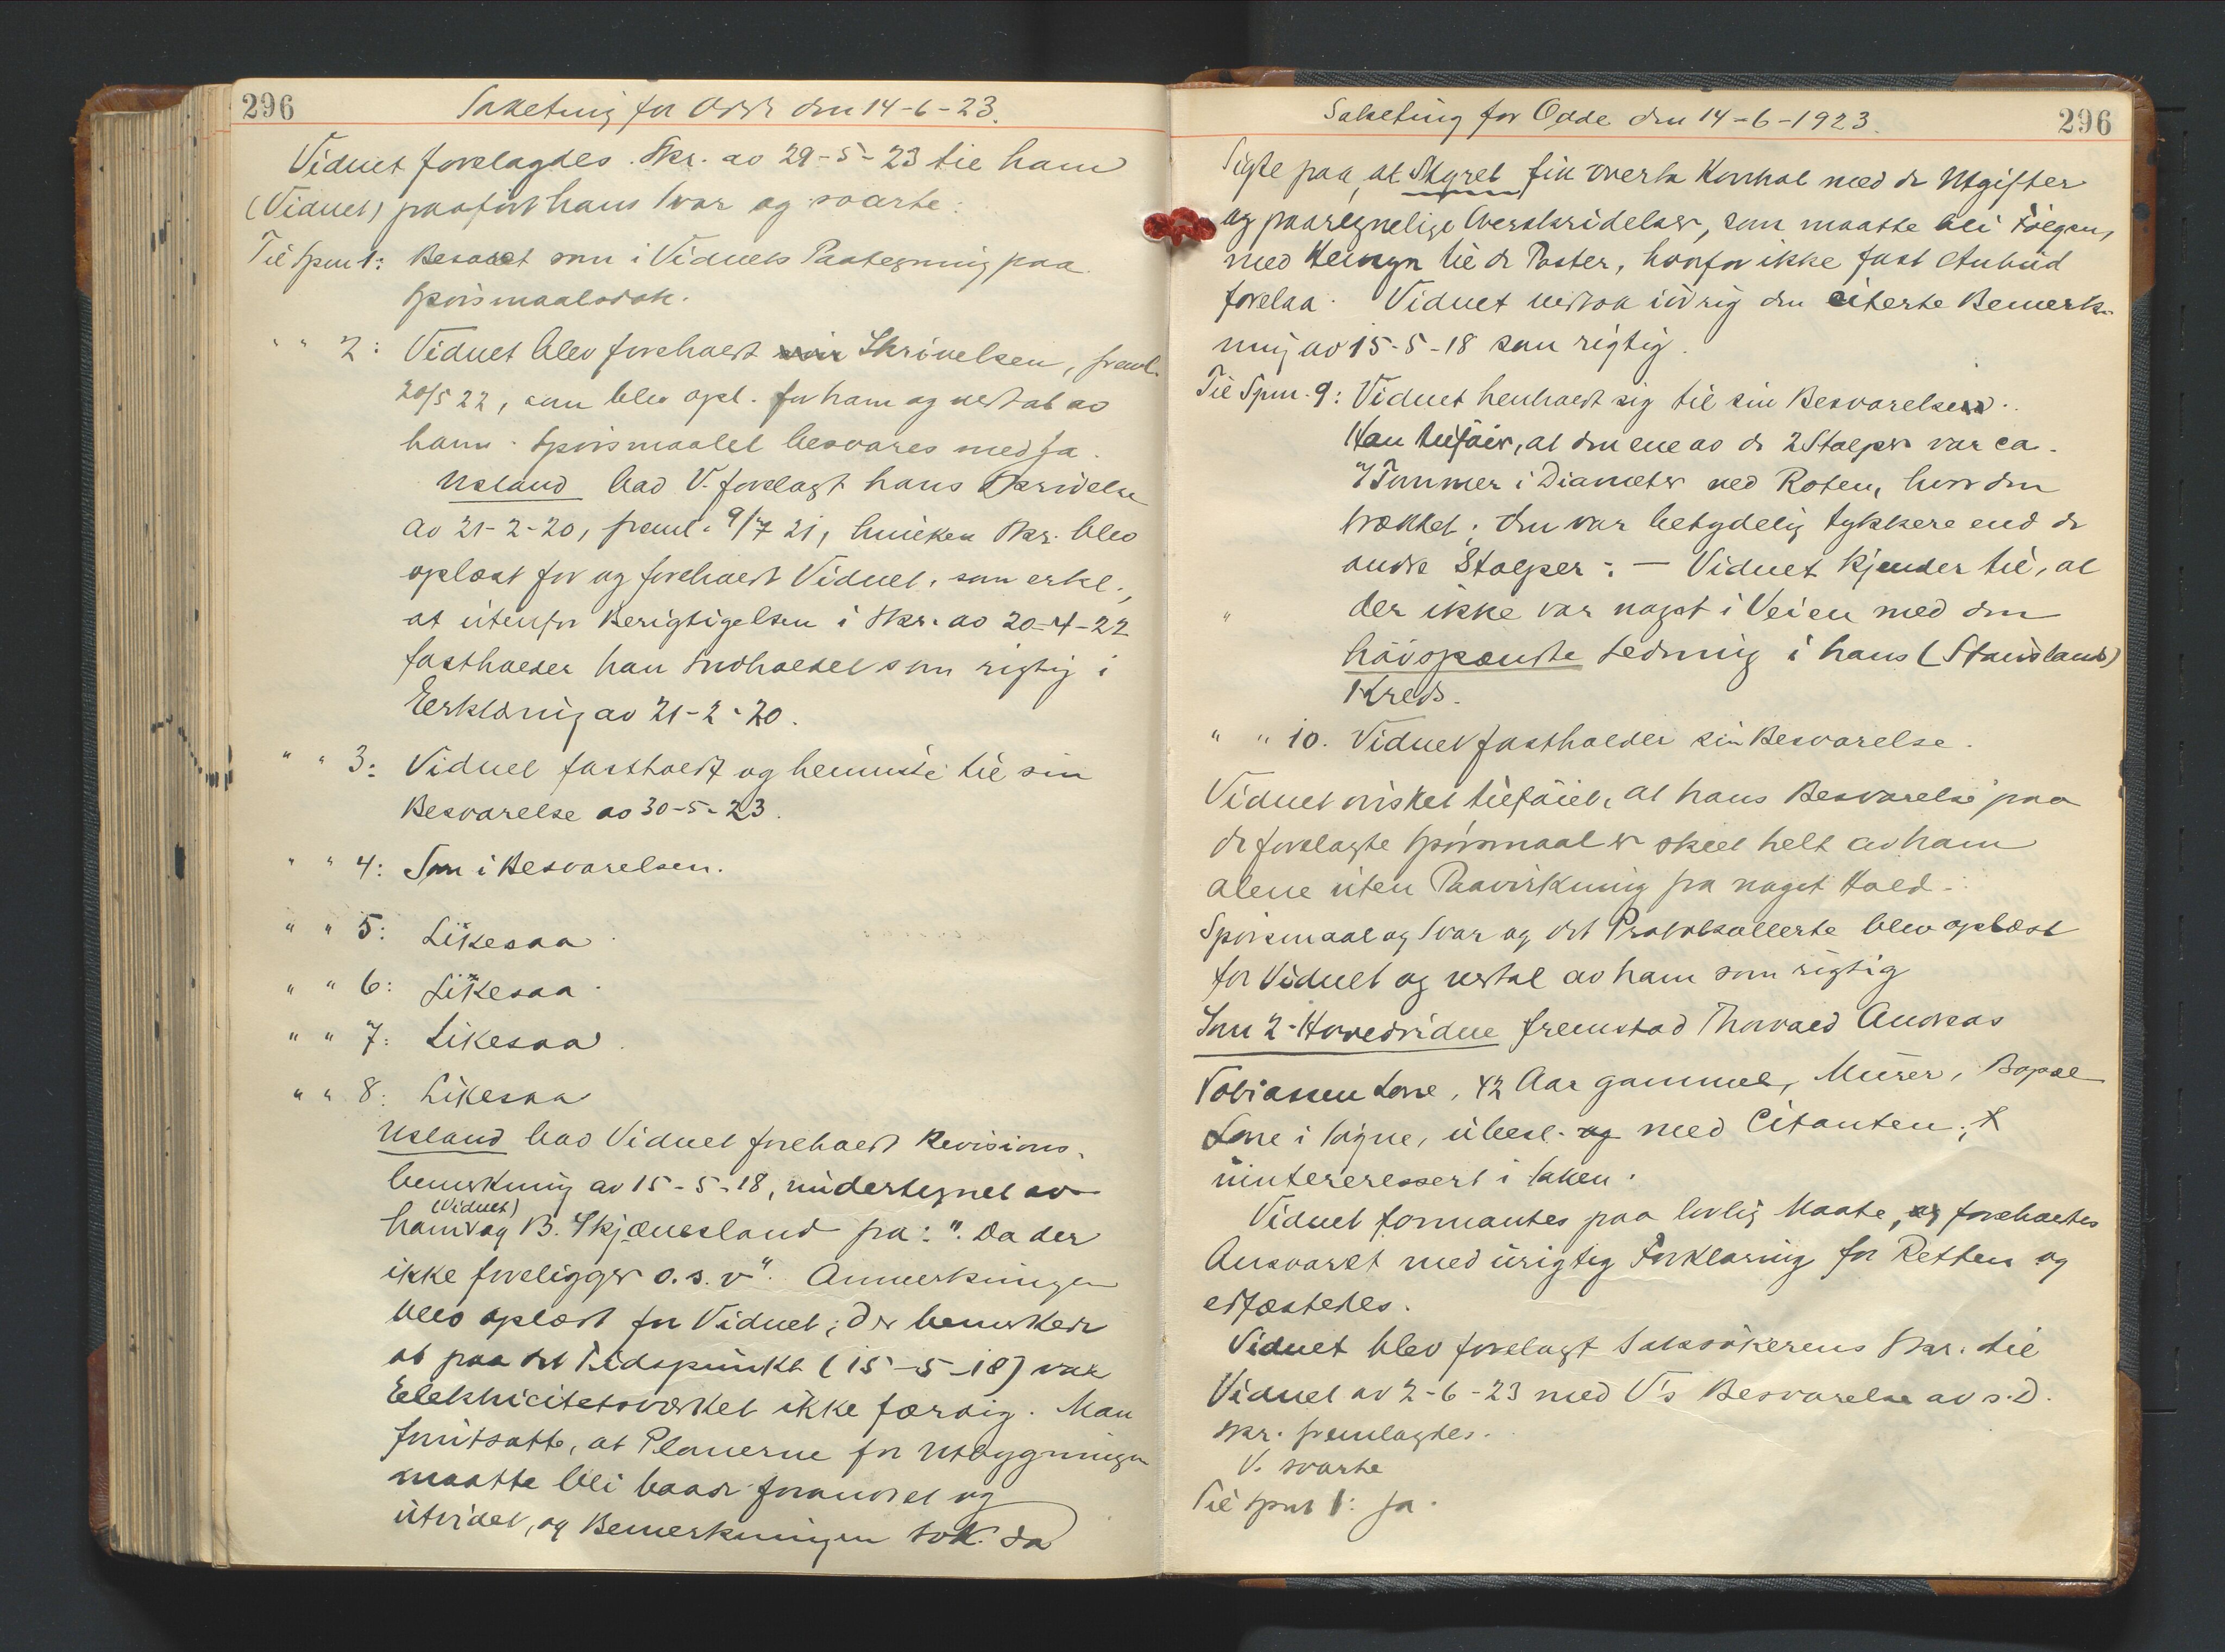 296
Saketing for Odde den 14-6-23.
Vidnet forelagdes Skr. av 29-5-23 til ham
(Vidnet) paaført hans Svar og svarte:
Til Spm 1: Besvaret som i Vidnets Paategning paa
Spörsmaalsdok.
" " 2: Vidnet blev foreholdt Skrivelsen, freml.
20/5 22, som blev opl. for ham og vedtat av
ham. Spörsmaalet besvares med Ja.
Usland bad V. forelagt hans Skrivelse
av 21-2-20, freml. 9/7 21, hvilken Skr. blev
oplæst for og foreholdt Vidnet, som erkl.,
at utenfor Berigtigelsen i Skr. av 20-4-22
fastholder han Indholdet som rigtig i
Erklæring av 21-2-20.
" " 3: Vidnet fastholdt og henviste til sin
Besvarelse av 30-5-23.
" " 4: Som i Besvarelsen.
" " 5: Likesaa
" " 6: Likesaa
" " 7: Likesaa
" " 8: Likesaa
Usland bad Vidnet foreholdt Revisions-
bemerkning av 15-5-18, undertegnet av
(Vidnet)
ham og B. Skjævesland paa: "Da der
ikke foreligger o.s.v." Anmerkningen
blev oplæst for Vidnet; der bemerkede
at paa det Tidspunkt (15-5-18) var
Elektricitetsverket ikke færdig. Man
forutsatte, at Planerne for Utbyggningen
maatte bli baade forandret og
utvidet, og Bemerkningen tok da
Saketing for Odde den 14-6-1923.
296
Sigte paa, at Styret fik overta Kontrol med de Utgifter
og paaregnelige Overskridelser, som maatte bli Fölgen,
med Hensyn til de Poster, hvorfor ikke fast Anbud
forelaa. Vidnet vedtok iövrig den citerte Bemerk-
ning av 15-5-18 som rigtig.
Til Spm. 9: Vidnet henholdt sig til sin Besvarelse.
Han tilföier, at den ene av de 2 Stolper var ca.
7 Tommer i Diameter ved Roten, hvor den
brækket; den var betydelig tykkere end de
andre Stolper. — Vidnet kjender til, at
" der ikke var noget i Veien med den
höispændte Ledning i hans (Stauslands)
Kreds.
" " 10. Vidnet fastholder sin Besvarelse.
Vidnet ønsket tilföiet, at hans Besvarelse paa
de forelagte Spörsmaal er skeet helt av ham
alene uten Paavirkning fra noget Hold.
Spörsmaal og Svar og det Protokollerte blev oplæst
for Vidnet og vedtat av ham som rigtig
Som 2. Hovedvidne fremstod Thorvald Andreas
Tobiassen Lone, 42 Aar gammel, Murer, Bopæl
Lone i Søgne, ubesl. og med Citanten, &
uintereressert i Saken.
Vidnet formantes paa lovlig Maate, og foreholdtes
Ansvaret med urigtig Forklaring for Retten og
edfæstedes.
Vidnet blev forelagt Saksökerens Skr. til
Vidnet av 2-6-23 med V's Besvarelse av s.D.
Skr. fremlagdes.
V. svarte
Til Spm 1: Ja.